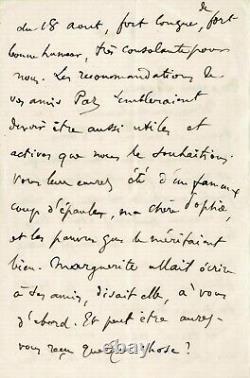 du 18 aout, fort longue, de fort
bonne humeur, très consolante pour
nous. Les recommandations de
vos amis Paz sembleraient
devoir être aussi utiles et
actives que nous le souhaitions.
Vous leur aurez été d'un fameux
coup d'épaule, ma chère Sophie,
et les pauvres gas le méritaient
bien. Marguerite allait écrire
à ses amis, disait elle, à vous
d'abord. Et peut être aurez-
vous reçu quelque chose?